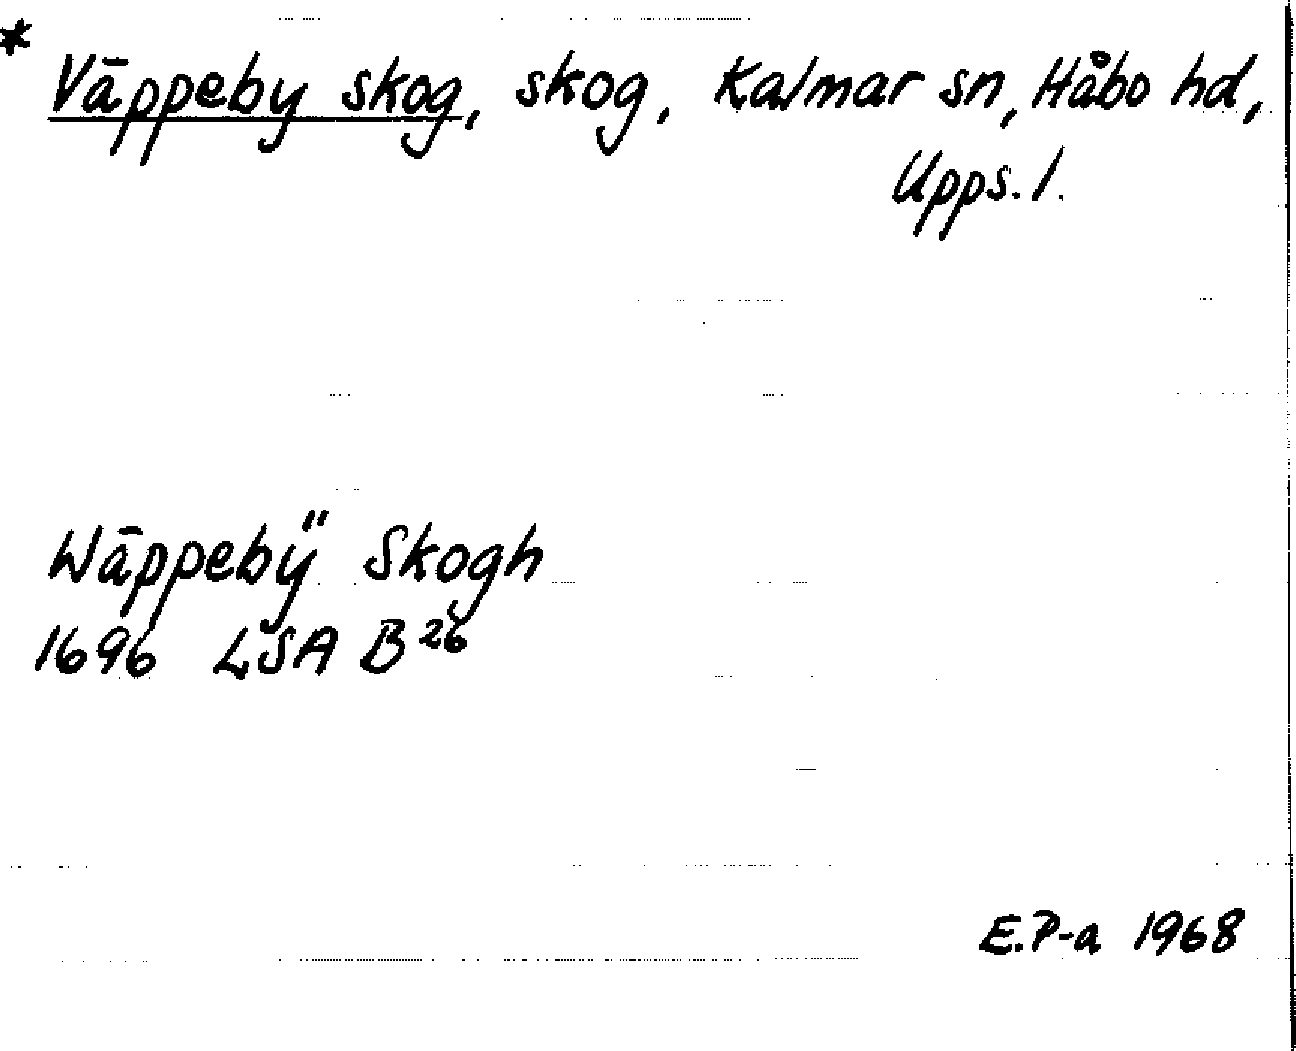 * Väppeby skog, skog, Kalmar sn, Håbo hd,
Upps. l.
Wäppebÿ Skogh
1696 LSA B 26
E.P-a 1968